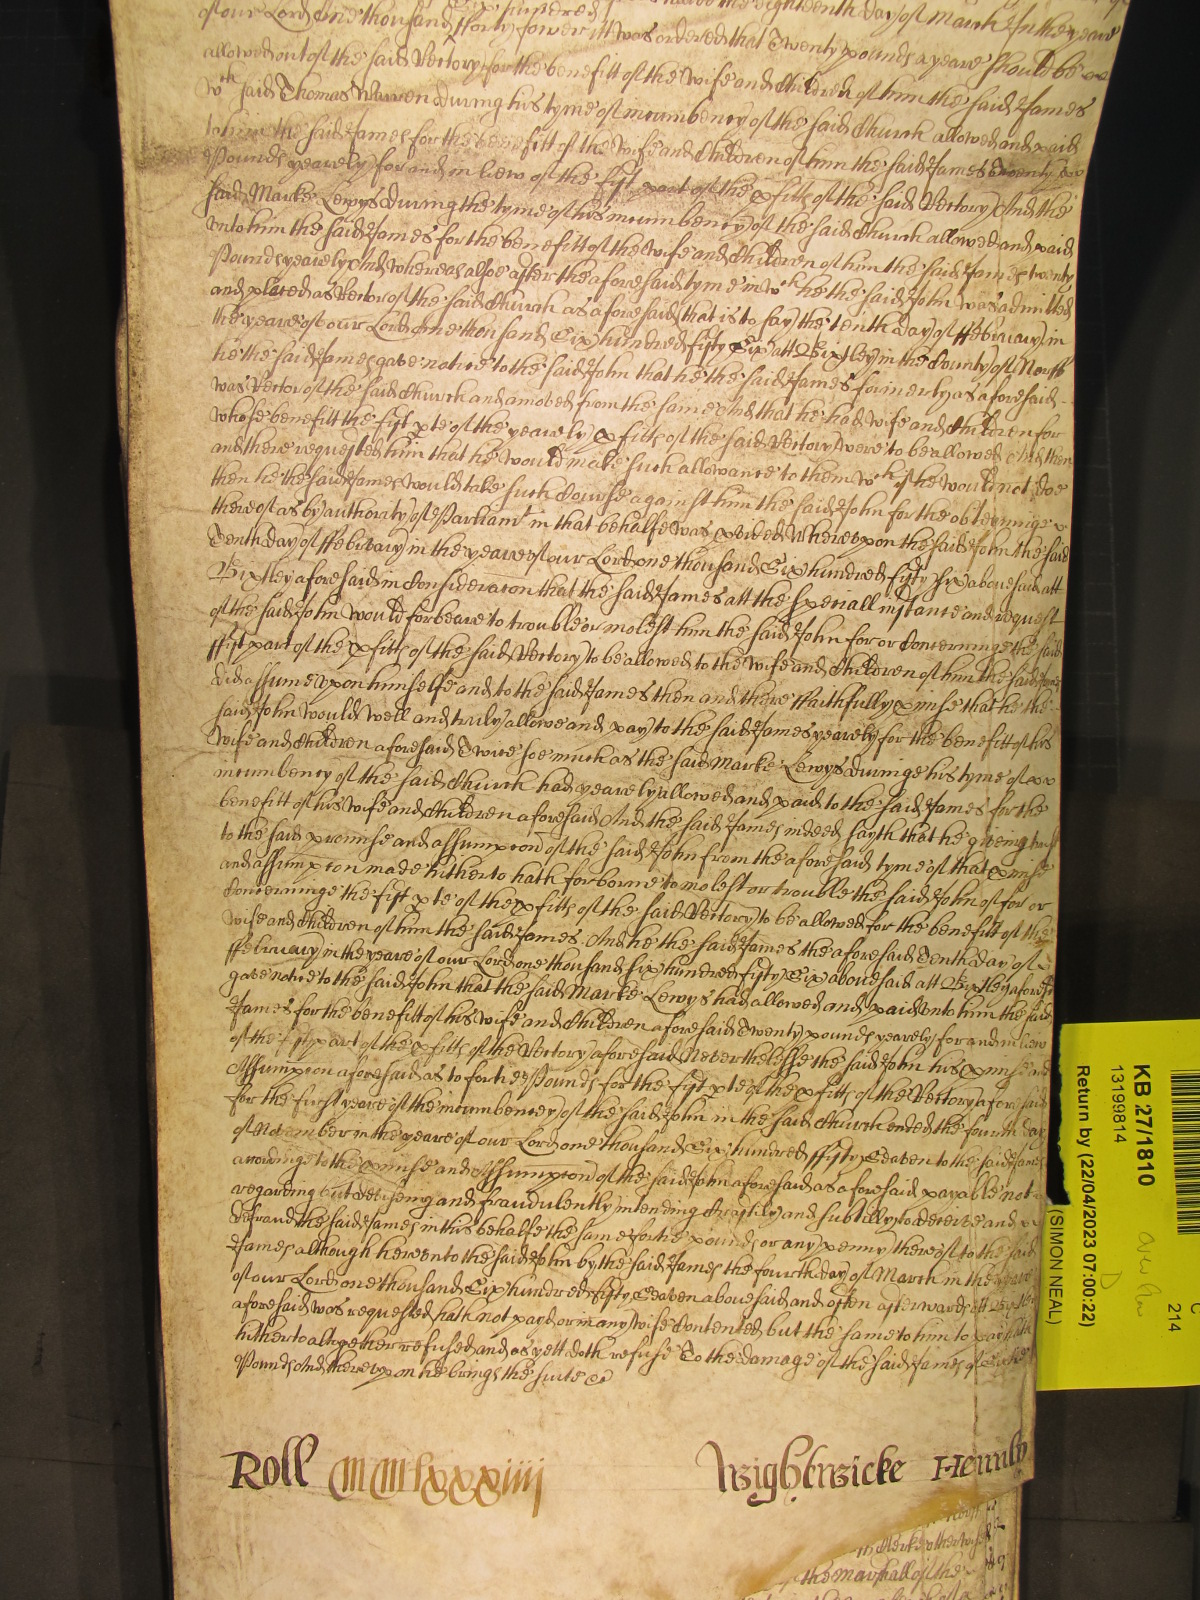 of our Lord One thousand Six hundred fforty fower itt was ordered that Twenty pounds a yeare should be
allowed out of the said Rectory for the benefitt of the wife and Children of him the said James
wch said Thomas Warren during his tyme of incumbency of the said Church allowed and paid
to him the said James for the benefitt of the wife and Children of him the said James twenty
Pounds yearely for and in liew of the fift part of the pfitts of the said Rectory And the
said Marke Lewys during the tyme of his incumbency of the said Church allowed and paid
vnto him the said James for the benefitt of the wife and Children of him the said James twenty
Pounds yearely And whereas alsoe after the aforesaid tyme in wch he the said John was admitted
and placed as Rector of the said Church as aforesaid that is to say the tenth day of ffebruary in
the yeare of our Lord One thousand Six hundred fifty Six att Bixtley in the County of Norff
he the said James gave notice to the said John that he the said James formerly as aforesaid
was Rector of the said Church and amoved from the same And that he had wife and Children for
whose benefitt the fift pte of the yearely pfitts of the said Rectory were to be allowed And then
and there requested him that he would make such allowance to them wch if he would not doe
then he the said James would take such Course against him the said John for the obteyninge
thereof as by authority of Parliamt in that behalfe was pvided Wherevpon the said John the said
Tenth day of ffebruary in the yeare of our Lord one thousand Six hundred fifty Six abovesaid att
Bixtley aforesaid in Consideracon that the said James att the speciall instance and request
of the said John would forbeare to trouble or molest him the said John for or Concerninge the said
ffift part of the pfitts of the said Rectory to be allowed to the wife and Children of him the said James
did assume vpon himselfe and to the said James then and there ffaithfully pmise that he the
said John would well and truly allowe and pay to the said James yearely for the benefitt of his
wife and Children aforesaid Twice soe much as the said Marke Lewys duringe his tyme of
incumbency of the said Church had yearely allowed and paid to the said James for the
benefitt of his wife and Children aforesaid And the said James indeed sayth that he giveing trust
to the said promise and assumpcon of the said John from the aforesaid tyme of that pmise
and assumpcon made hitherto hath forborne to molest or trouble the said John of for or
Concerninge the fift pte of the pfitts of the said Rectory to be allowed for the benefitt of the
wife and Children of him the said James And he the said James the aforesaid Tenth day of
ffebruary in the yeare of our Lord one thousand six hundred fifty Six abovesaid att Bixtley aforesd
gave notice to the said John that the said Marke Lewys had allowed and paid vnto him the said
James for the benefitt of his wife and Children aforesaid Twenty pounds yearely for and in liew
of the fift part of the pfitts of the Rectory aforesaid Neverthelesse the said John his pmise and
Assumpcon aforesaid as to fortie Pounds for the fift pte of the pfitts of the Rectory aforesaid
for the first yeare of the incumbency of the said John in the said Church ended the fourth day
of November in the yeare of our Lord one thousand Six hundred ffifty Seaven to the said James
accordinge to the pmise and Assumpcon of the said John aforesaid as aforesaid payable not
regarding but deviseing and fraudulently intending Craftily and subtilly to deceive and
defraud the said James in this behalfe the same fortie pounds or any penny thereof to the said
James although herevnto the said John by the said James the fourth day of March in the yeare
of our Lord one thousand Six hundred fifty Seaven abovesaid and often afterwards att Bixtley
aforesaid was requested hath not payd or in any wise Contented but the same to him to pay hath
hitherto altogether refused and as yett doth refuse To the damage of the said James of
Pounds And therevpon he brings the suite &c
Roll MMlxxxiiij
Wightwicke Henly
Clerke otherwise
the Marshall of the
KB 27/1810
13199814
Return by (22/04/2023 07:00:22)
(SIMON NEAL)
214